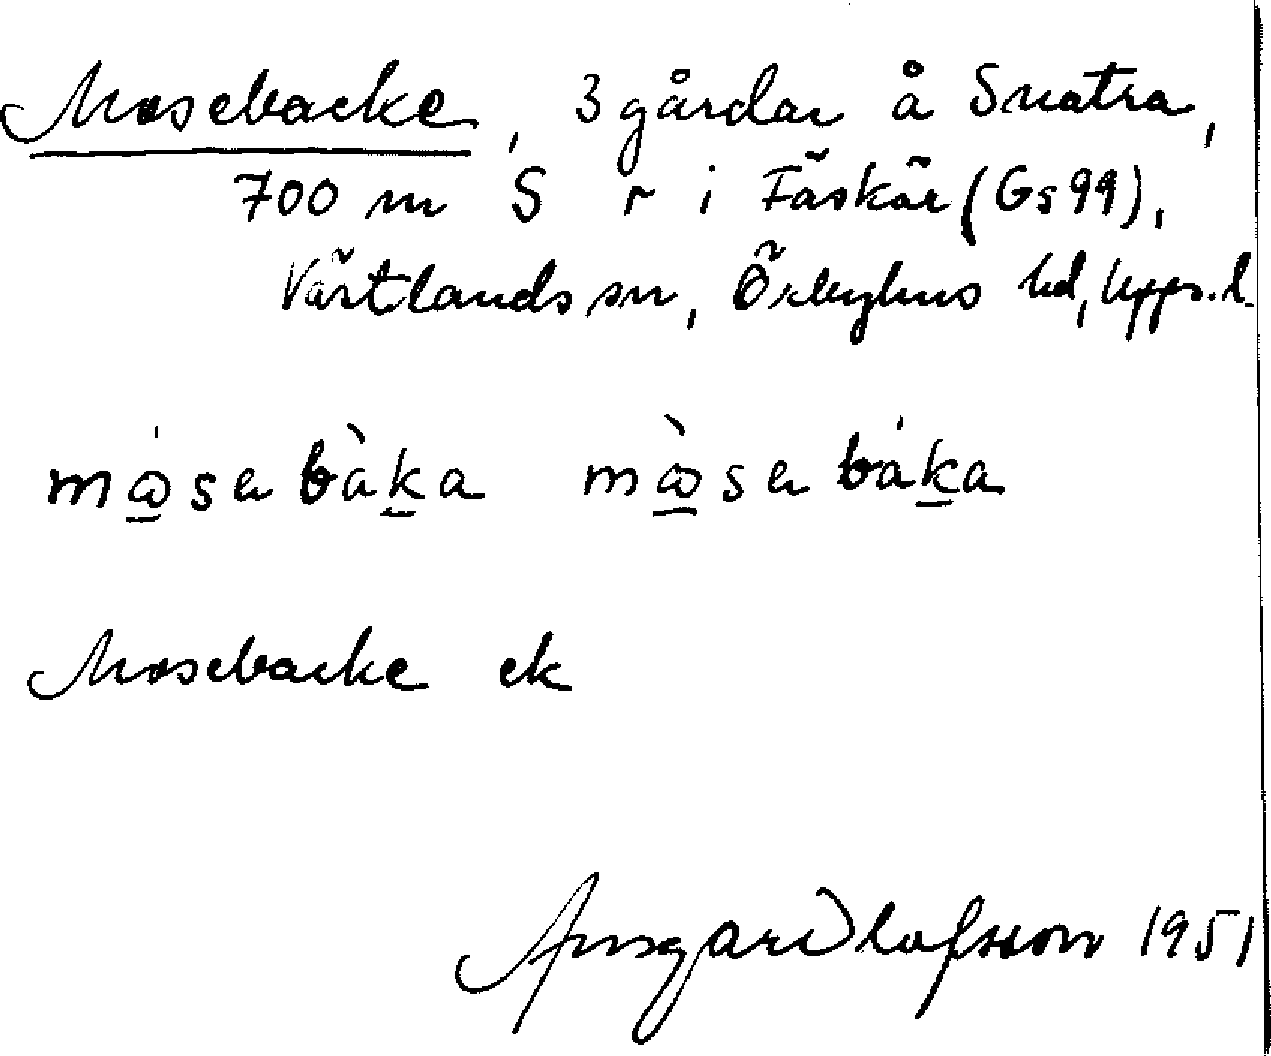 Mosebacke, 3 gårdar å Snatra,
700 m S r i Fäskär (Gs 99),
Västlands sn, Örbyhus hd, Upps. l.
Mosebacke ek
Ansgar Olofsson 1951